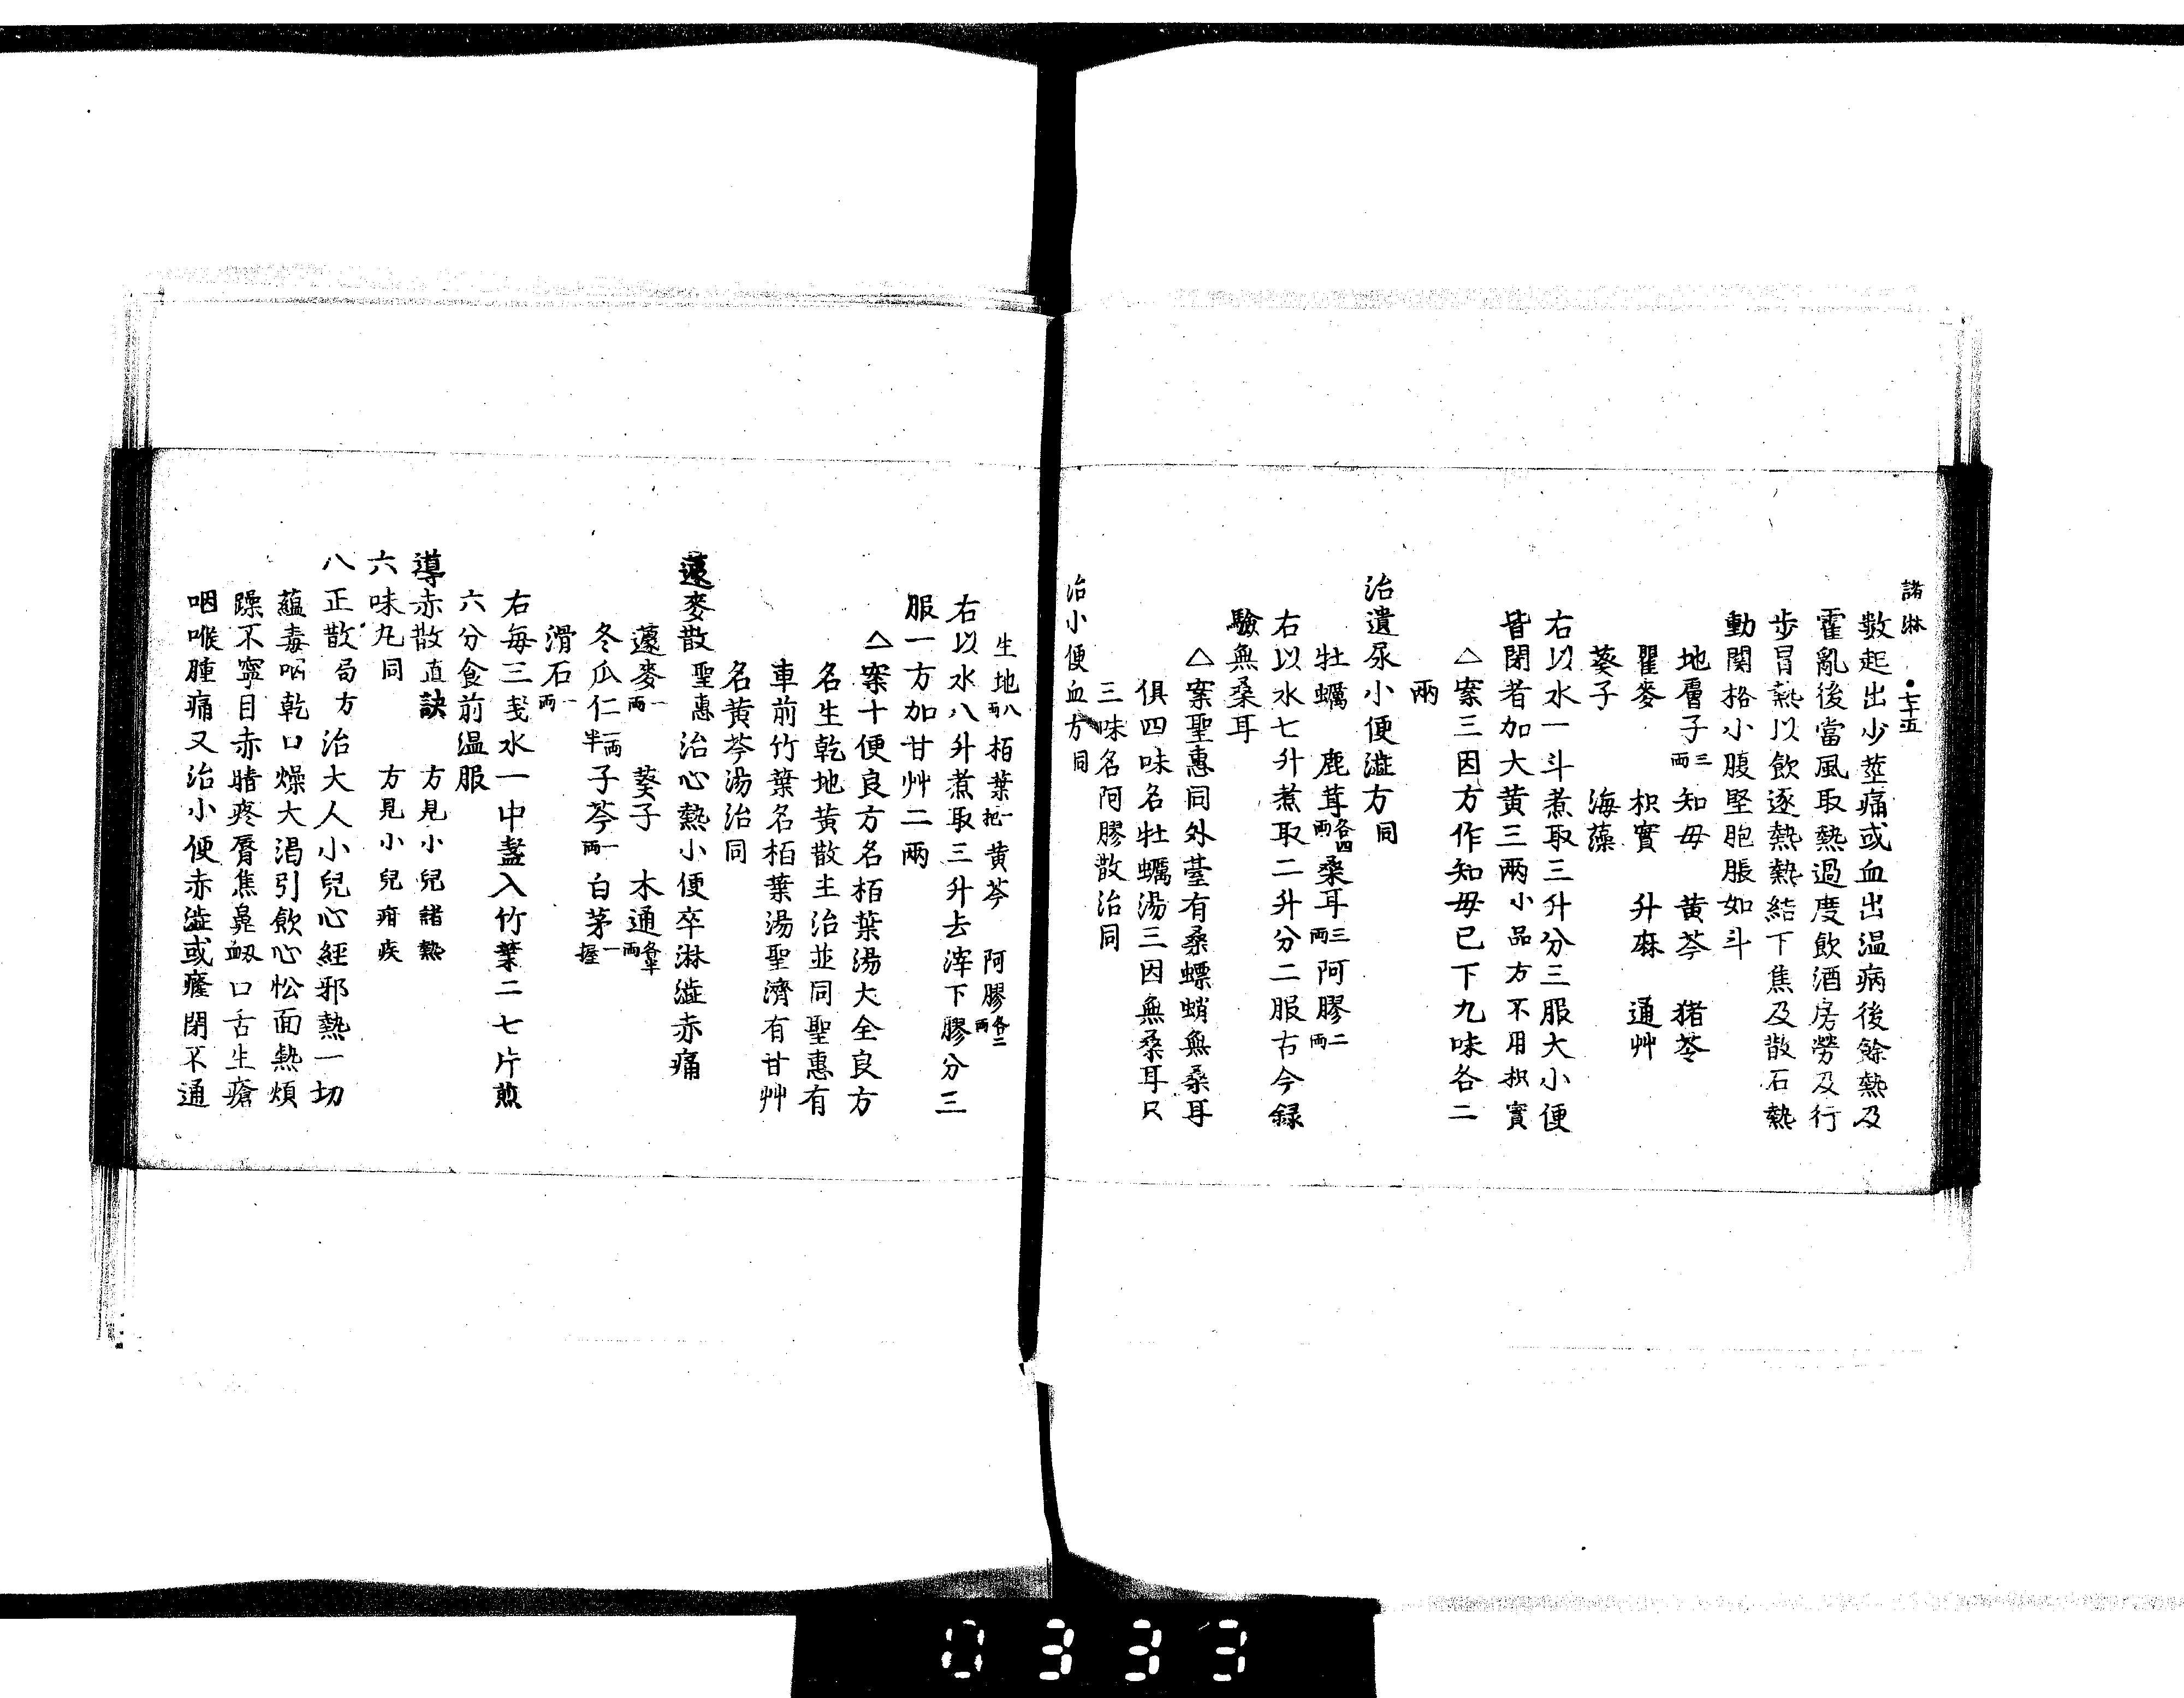 諸淋 ・七十五
數起出少莖痛或血出温病後餘熱及
霍亂後當風取熱過度飲酒房勞及行
歩冒熱以飲逐熱熱結下焦及散石熱
動関格小腹堅胞脹如斗
地膚子三両 知母 黄芩 猪苓
瞿麥 枳實 升麻 通艸
葵子 海藻
右以水一斗煮取三升分三服大小便
皆閉者加大黄三兩小品方不用枳實
△案三因方作知母已下九味各二
兩
治遺尿小便澁方同
牡蠣 鹿茸各四両 桑耳三両 阿膠二両
右以水七升煮取二升分二服古今録
驗無桑耳
△案聖惠同外臺有桑螵蛸無桑耳
俱四味名牡蠣湯三因無桑耳只
三味名阿膠散治同
治小便血方同
生地八両 栢葉一把 黄芩 阿膠各二両
右以水八升煮取三升去滓下膠分三
服一方加甘艸二兩
△案十便良方名栢葉湯大全良方
名生乾地黄散主治並同聖惠有
車前竹葉名栢葉湯聖濟有甘艸
名黄芩湯治同
蘧麥散 聖惠 治心熱小便卒淋澁赤痛
蘧麥一両 葵子 木通各半両
冬瓜仁一両半 子芩一両 白茅一握
滑石一両
右毎三戔水一中盞入竹葉二七片煎
六分食前温服
導赤散直訣 方見小兒諸熱
六味丸同 方見小兒疳疾
八正散局方 治大人小兒心經邪熱一切
蘊毒咽乾口燥大渇引飲心忪面熱煩
躁不寧目赤睛疼脣焦鼻衂口舌生瘡
咽喉腫痛又治小便赤澁或癃閉不通
0333